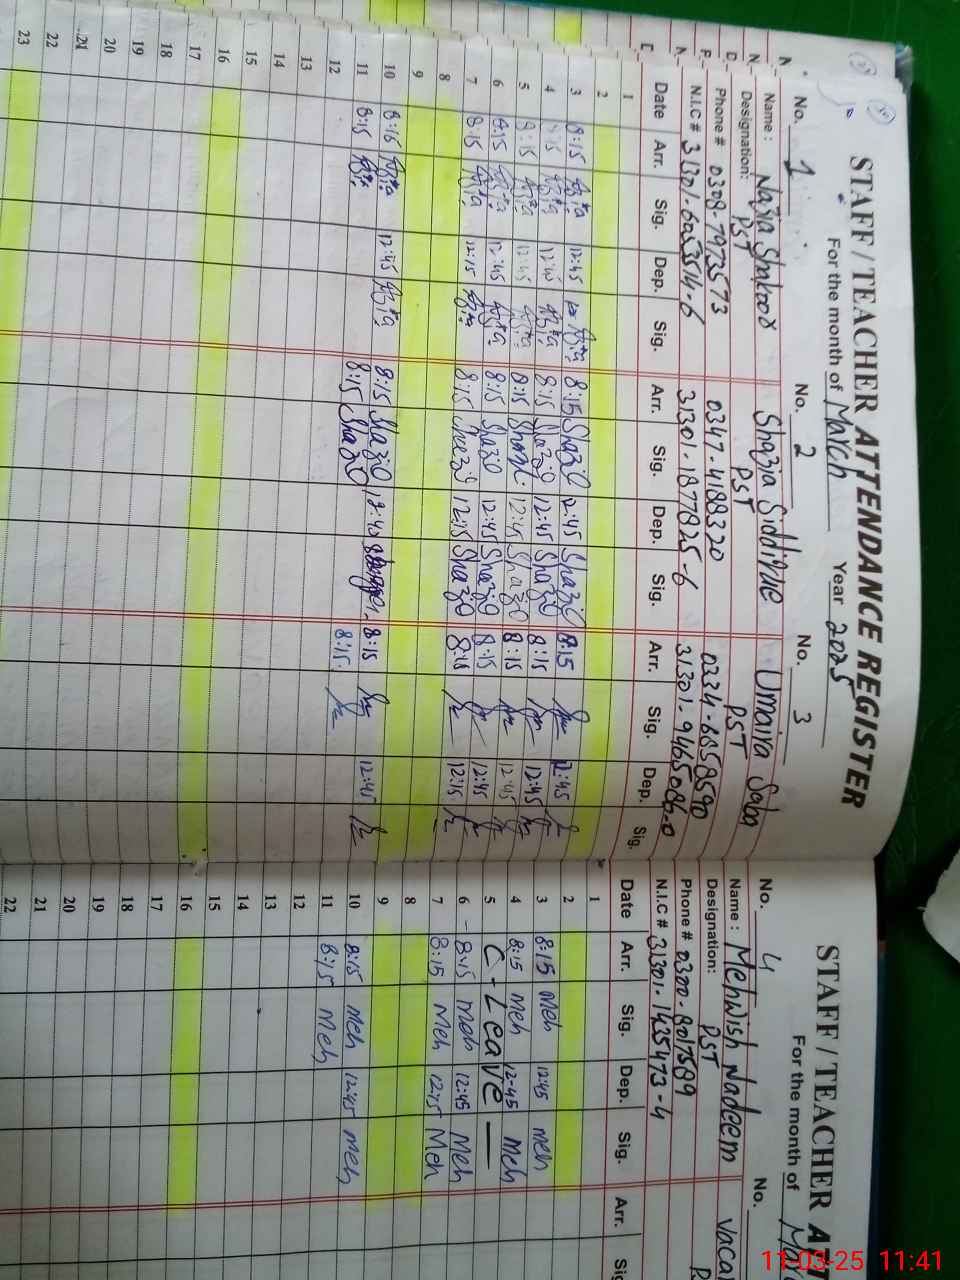 STAFF / TEACHER ATTENDANCE REGISTER
For the month of March Year 2025
No. 1 No. 2 No. 3
Name : Nazia Shakoor Shazia Siddique Umaira Saba
Designation: PST PST PST
Phone # 0308-7973573 0347-4188320 0324-6858590
N.I.C # 31301-6053514-6 31301-1877825-6 31301-9165086-0
Date Arr. Sig. Dep. Sig. Arr. Sig. Dep. Sig. Arr. Sig. Dep. Sig.
1
2
3 8:15 12:45 8:15 Shazia 12:45 Shazia 8:15 12:45
4 8:15 12:45 8:15 Shazia 12:45 Shazia 8:15 12:45
5 8:15 12:45 8:15 12:45 Shazia 8:15 12:45
6 8:15 12:45 8:15 Shazia 12:45 Shazia 8:15 12:45
7 8:15 12:15 8:15 12:15 Shazia 8:15 12:15
8
9
10 8:16 12:45 8:15 Shazia 12:45 8:15 12:45
11 8:15 8:15 Shazia 8:15
12
13
14
15
16
17
18
19
20
21
22
23
STAFF / TEACHER ATT
For the month of Mar
No. 4 No.
Name : Mehwish Nadeem Vacan
Designation: PST P
Phone # 0300-8017589
N.I.C # 31301-1435473-4
Date Arr. Sig. Dep. Sig. Arr. Sig
1
2
3 8:15 Meh 12:45 meh
4 8:15 Meh 12-45 Meh
5 C-Leave
6 8:15 meh 12:45 Meh
7 8:15 Meh 12:15 Meh
8
9
10 8:15 meh 12:45 meh
11 8:15 Meh
12
13
14
15
16
17
18
19
20
21
22
11-03-25 11:41